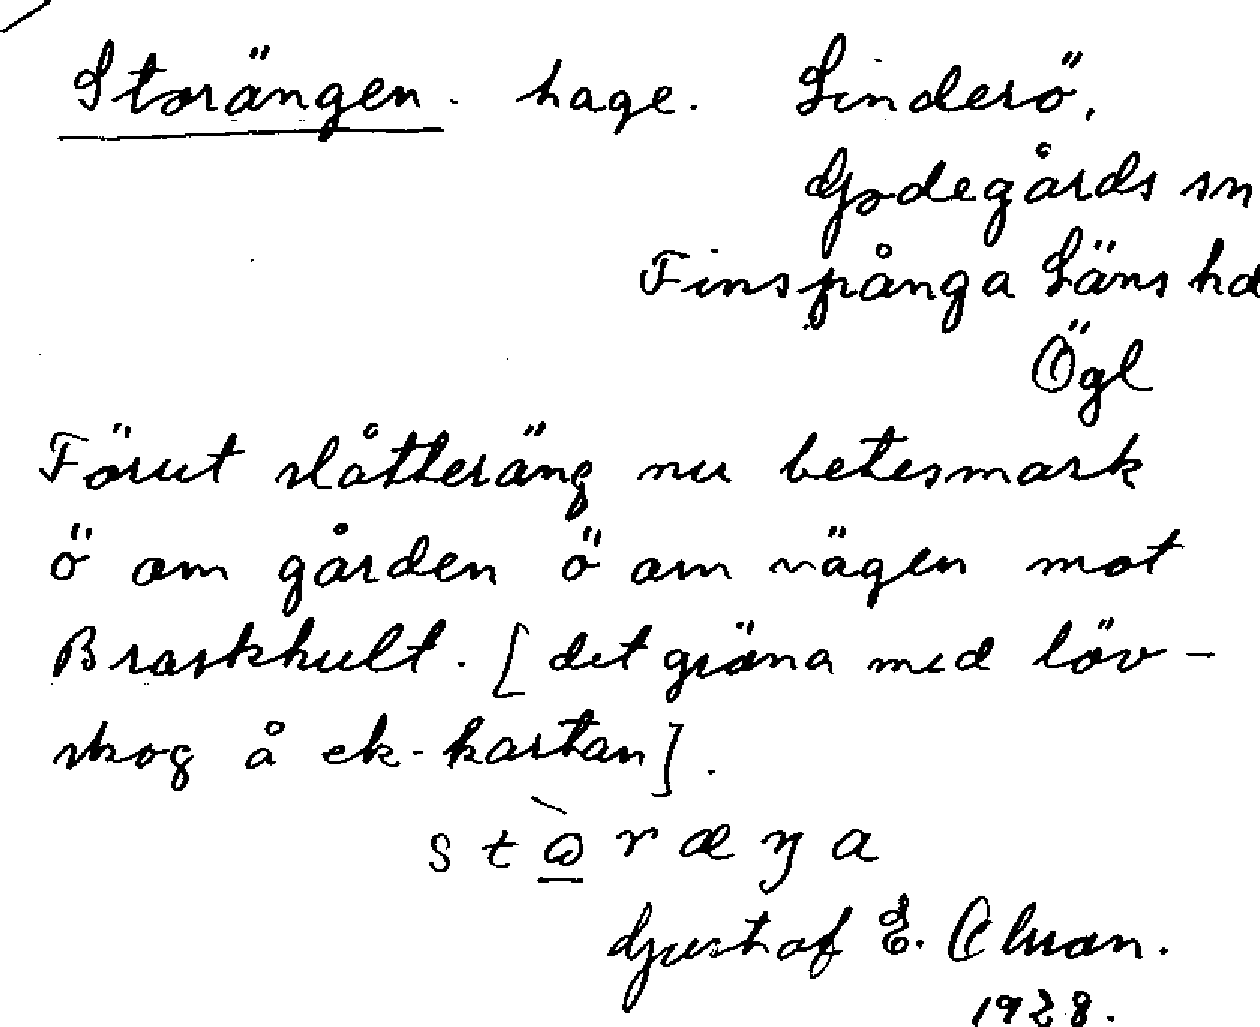 Storängen. hage. Linderö,
Godegårds sn
Finspånga Läns hd
Ögl
Förut slåtteräng nu betesmark
ö om gården ö om vägen mot
Braskhult. [det gröna med löv-
skog å ek-kartan].
Gustaf E.
1928.